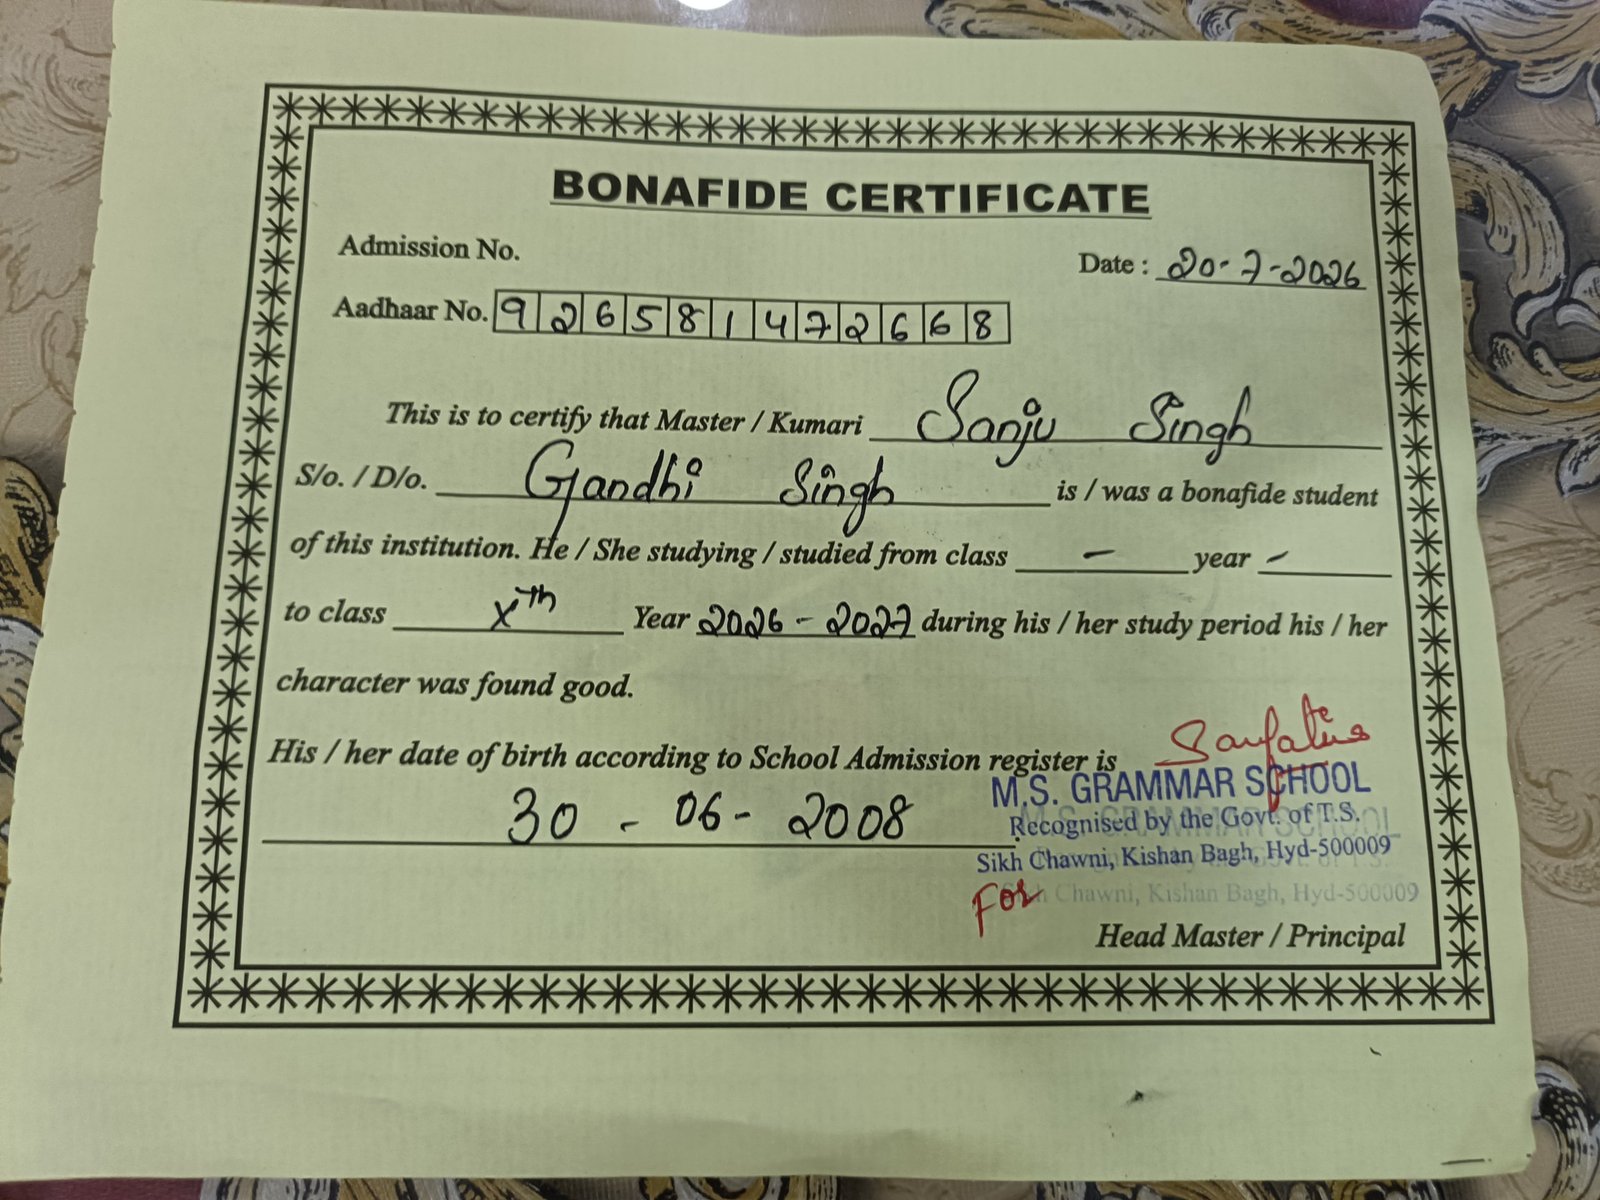 BONAFIDE CERTIFICATE
Admission No.
Date : 20-7-2026
Aadhaar No. 926581472668
This is to certify that Master / Kumari Sanju Singh
S/o. / D/o. Gandhi Singh is / was a bonafide student
of this institution. He / She studying / studied from class - year -
to class Xth Year 2026 - 2027 during his / her study period his / her
character was found good.
His / her date of birth according to School Admission register is
30 - 06 - 2008
M.S. GRAMMAR SCHOOL
Recognised by the Govt. of T.S.
Sikh Chawni, Kishan Bagh, Hyd-500009
For
Chawni, Kishan Bagh, Hyd-500009
Head Master / Principal